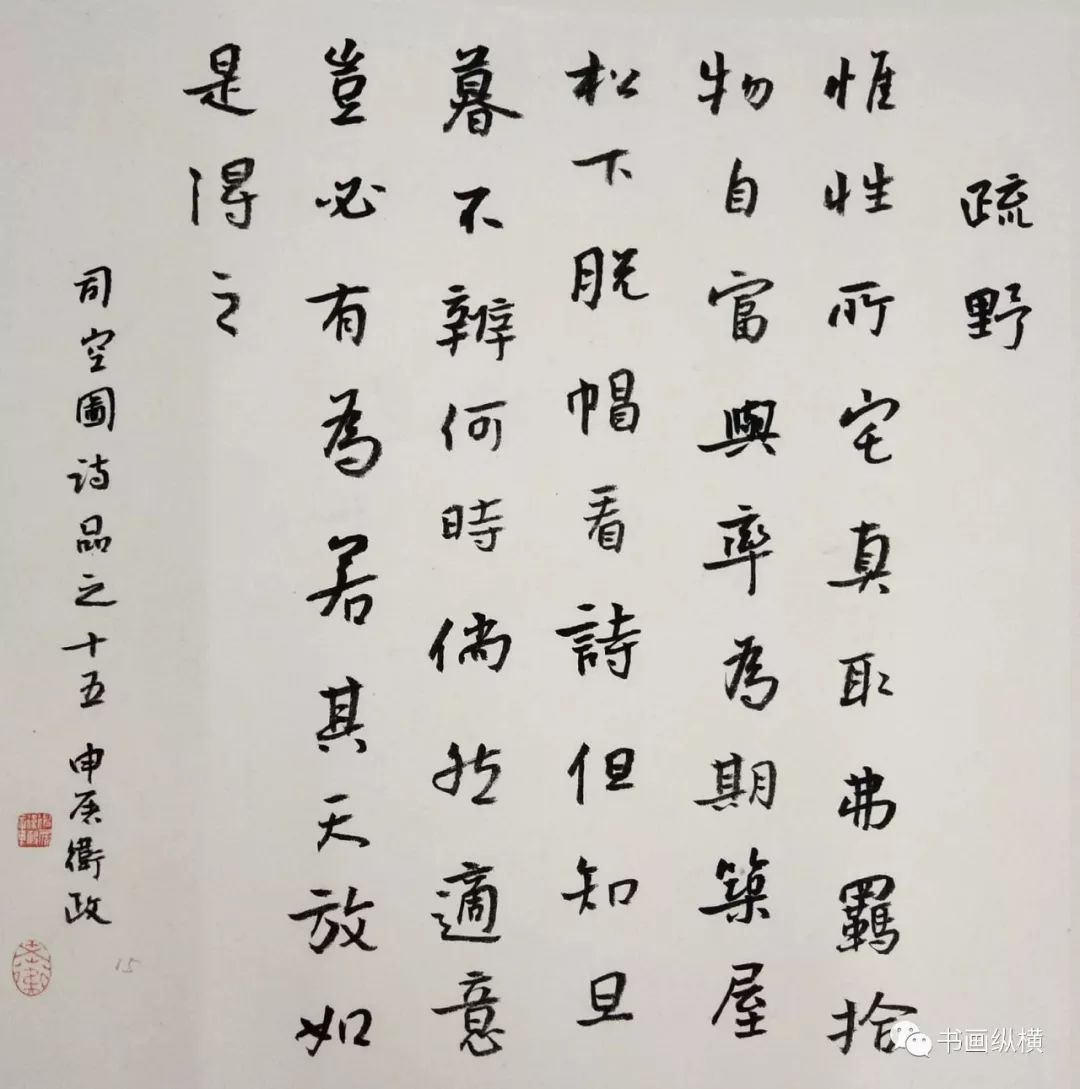 疏野
惟性所宅真取弗羈拾
物自富與率為期築屋
松下脱帽看詩但知旦
暮不辨何時倘然適意
豈必有為若其天放如
是得之
司空圖诗品之十五 申屠衛政
15
书画纵横